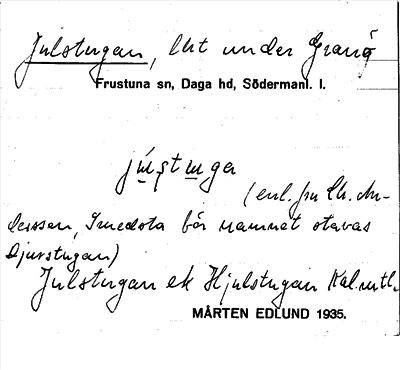 Julstugan, lht under Granö
Frustuna sn, Daga hd, Södermanl. l.
jústuga
(enl. fru Ch. An-
dersson, Smedsta bör namnet stavas
Djurstugan)
Julstugan ek Hjulstugan Kal.utl.
MÅRTEN EDLUND 1935.